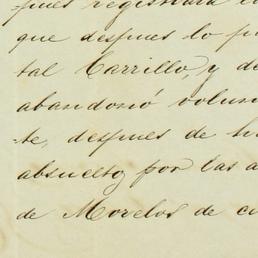 -pues registrara
que despues lo
tal Carrillo, y
abandonó volun
-te, despues de
absuelto por las
de Morelos de